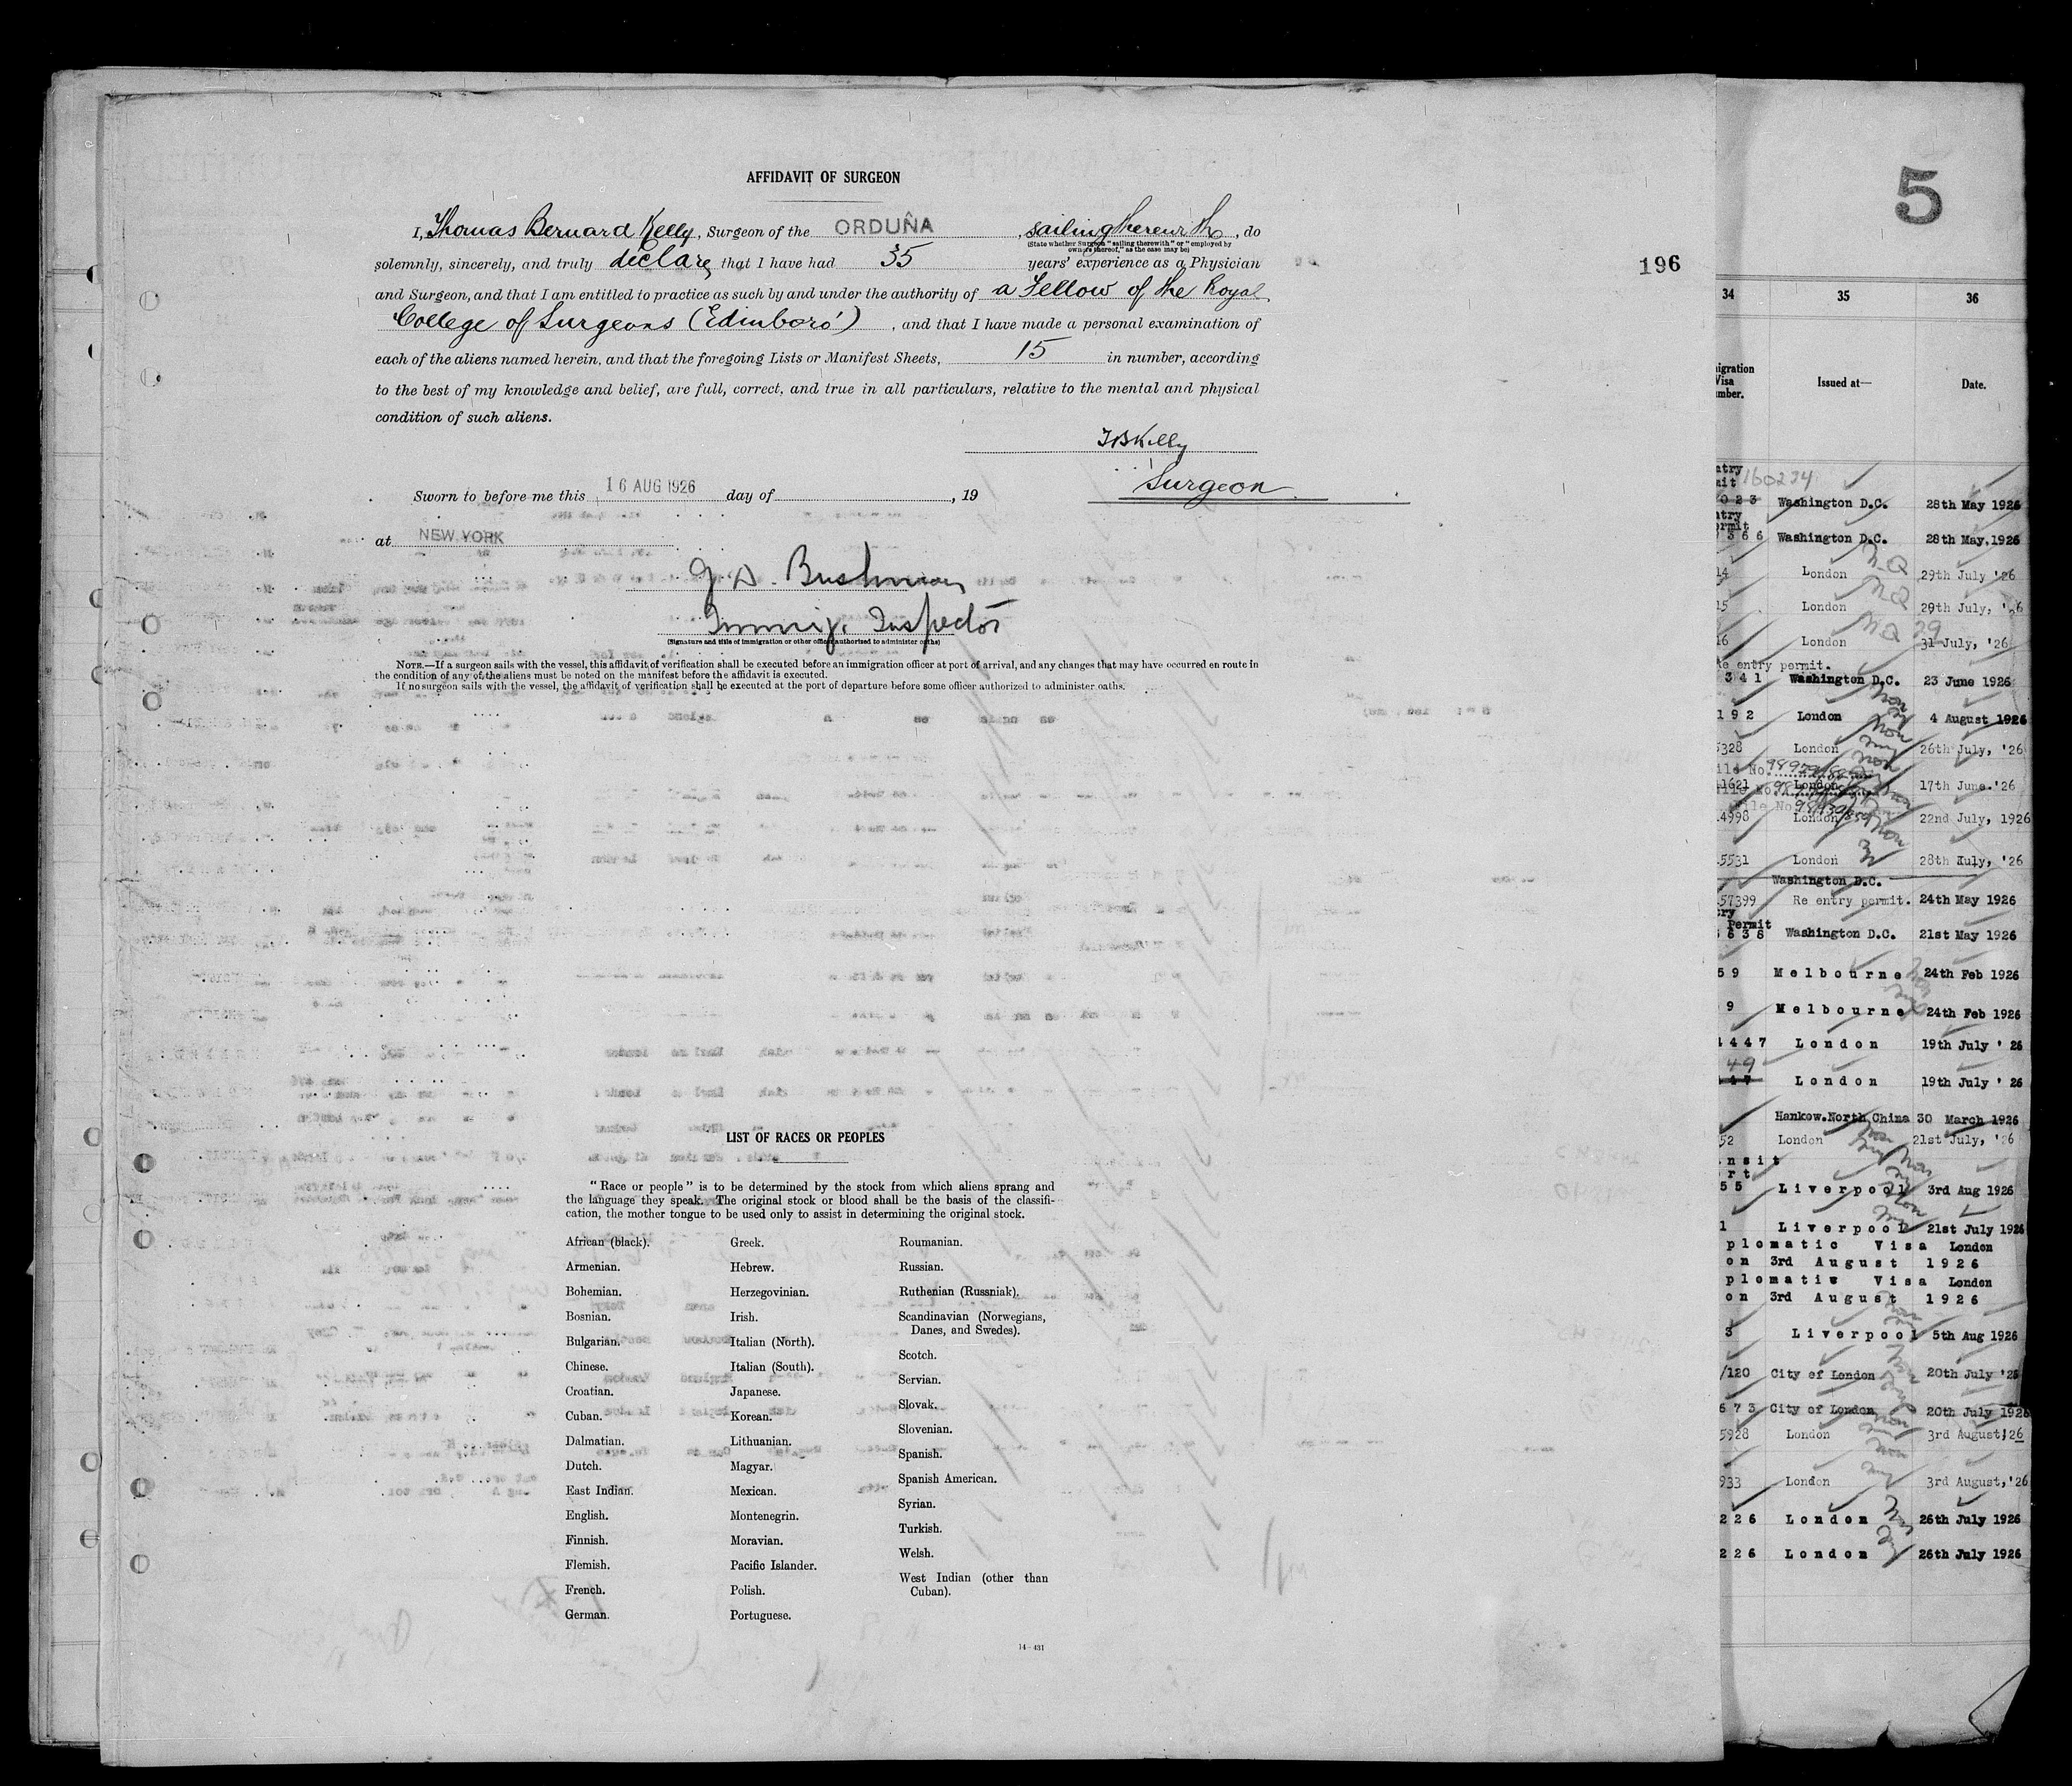 AFFIDAVIT OF SURGEON
I, Thomas Bernard Kelly, Surgeon of the ORDUÑA, sailing therewith, do
(State whether Surgeon "sailing therewith" or "employed by
owners thereof," as the case may be)
solemnly, sincerely, and truly declare that I have had 35 years' experience as a Physician
and Surgeon, and that I am entitled to practice as such by and under the authority of a Fellow of the Royal
College of Surgeons (Edinboro'), and that I have made a personal examination of
each of the aliens named herein, and that the foregoing Lists or Manifest Sheets, 15 in number, according
to the best of my knowledge and belief, are full, correct, and true in all particulars, relative to the mental and physical
condition of such aliens.
T B Kelly
Surgeon
Sworn to before me this 16 AUG 1926 day of , 19
at NEW YORK
Bushman
Immig. Inspector
(Signature and title of immigration or other officer authorized to administer oaths)
NOTE.—If a surgeon sails with the vessel, this affidavit of verification shall be executed before an immigration officer at port of arrival, and any changes that may have occurred en route in
the condition of any of the aliens must be noted on the manifest before the affidavit is executed.
If no surgeon sails with the vessel, the affidavit of verification shall be executed at the port of departure before some officer authorized to administer oaths.
196
LIST OF RACES OR PEOPLES
"Race or people" is to be determined by the stock from which aliens sprang and
the language they speak. The original stock or blood shall be the basis of the classifi-
cation, the mother tongue to be used only to assist in determining the original stock.
African (black).
Armenian.
Bohemian.
Bosnian.
Bulgarian.
Chinese.
Croatian.
Cuban.
Dalmatian.
Dutch.
East Indian.
English.
Finnish.
Flemish.
French.
German.
Greek.
Hebrew.
Herzegovinian.
Irish.
Italian (North).
Italian (South).
Japanese.
Korean.
Lithuanian.
Magyar.
Mexican.
Montenegrin.
Moravian.
Pacific Islander.
Polish.
Portuguese.
Roumanian.
Russian.
Ruthenian (Russniak).
Scandinavian (Norwegians,
Danes, and Swedes).
Scotch.
Servian.
Slovak.
Slovenian.
Spanish.
Spanish American.
Syrian.
Turkish.
Welsh.
West Indian (other than
Cuban).
14-431
5
34 35 36
Issued at— Date.
160234
Washington D.C. 28th May 1926
Washington D.C. 28th May, 1926
14 London 29th July '26
15 London 29th July, '26
16 London 31 July, '26
Re entry permit.
341 Washington D.C. 23 June 1926
192 London 4 August 1926
5328 London 26th July, '26
1621 London 17th June '26
4998 London 22nd July, 1926
5531 London 28th July, '26
Washington D.C.
57399 Re entry permit. 24th May 1926
Permit
Washington D.C. 21st May 1926
59 Melbourne 24th Feb 1926
9 Melbourne 24th Feb 1926
4447 London 19th July '26
49
London 19th July '26
Hankow. North China 30 March 1926
52 London 21st July, '26
55 Liverpool 3rd Aug 1926
1 Liverpool 21st July 1926
plomatic Visa London
on 3rd August 1926
plomatic Visa London
on 3rd August 1926
3 Liverpool 5th Aug 1926
/120 City of London 20th July '26
673 City of London 20th July 1926
5928 London 3rd August, '26
933 London 3rd August, '26
226 London 26th July 1926
226 London 26th July 1926